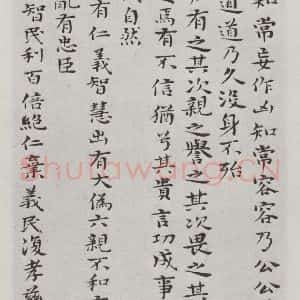 知常妄作凶知常容容乃公公
道道乃久没身不殆
有之其次親之譽之其次畏之其
焉有不信猶兮其貴言功成事
自然
有仁義智慧出有大偽六親不和
亂有忠臣
智民利百倍絕仁棄義民復孝慈
Shufawang.CN